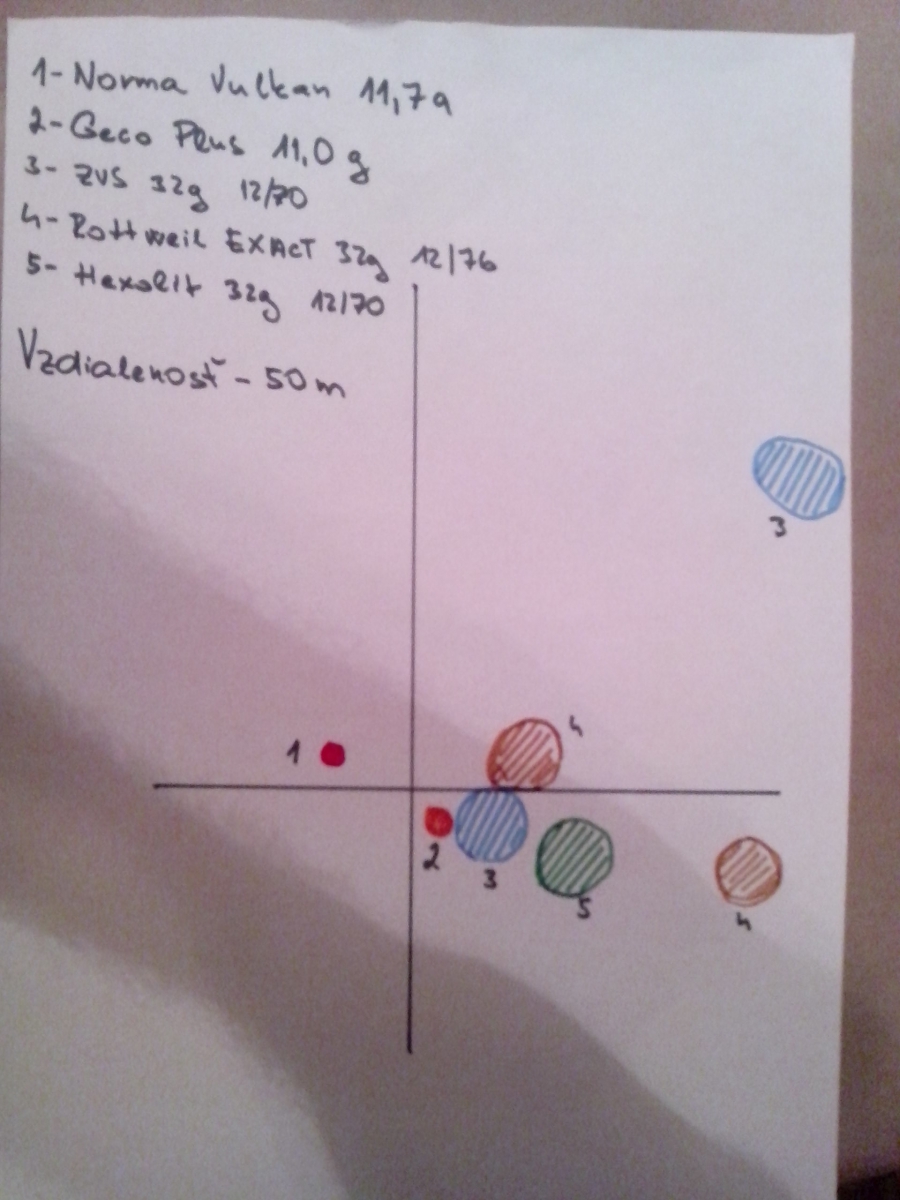 1- Norma Vulkan 11,7g
2- Geco Plus 11,0 g
3- ZVS 32g 12/70
4- Rottweil EXACT 32g 12/76
5- Hexolit 32g 12/70
Vzdialenosť - 50 m
3
4
1
2
3
5
4